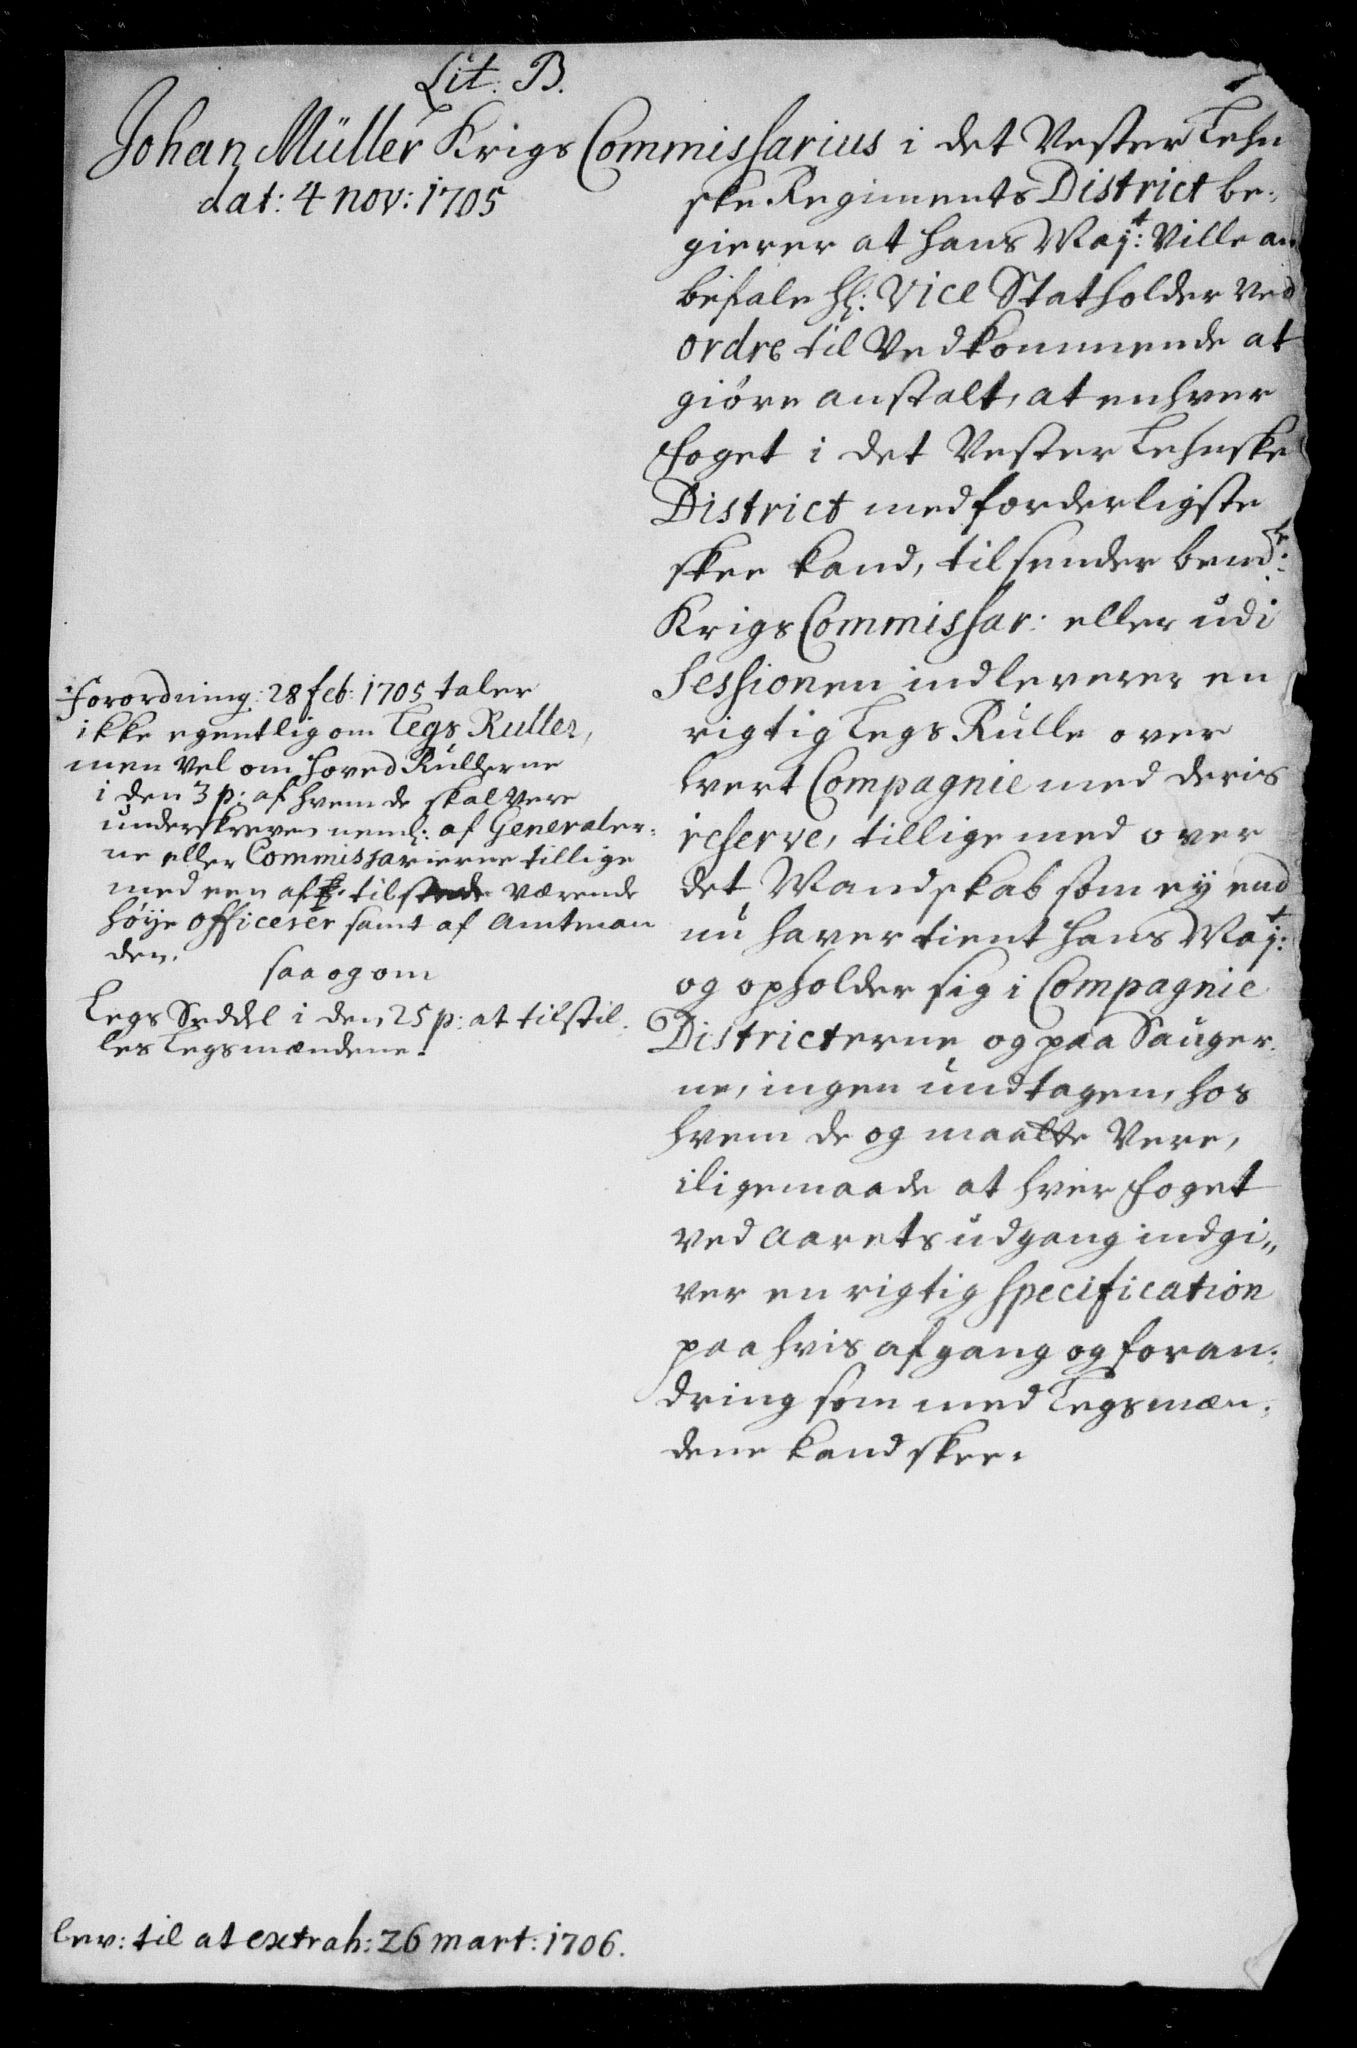 Lit. B.
Johan Müller Krigs Commissarius i det Vester Lehn
dat: 4 nov: 1705
ske Regiments District be-
gierer at hans Maj:t Ville an
befale H: Vice Statholder ved
ordre til Vedkommende at
giöre anstalt, at enhver
foget i det Vester Lehnske
District med forderligste
skee kand, tilsender bemd:te
Krigs Commissar: eller udi
Sessionen indleverer en
rigtig Legs Rulle over
hvert Compagnie med deris
reserve, tillige med over
det Mandskab som ey end
nu haver tient hans Maj:t
og opholder sig i Compagnie
Districterne og paa Sauger-
ne, ingen undtagen, hos
hvem de og maatte Vere,
iligemaade at hver foget
ved aarets udgang indgi„
ver en rigtig specification
paa hvis afgang og foran-
dring som med Legsmæn-
dene kand skee.
Forordning: 28 feb: 1705 taler
ikke egentlig om Legs Ruller,
men vel om hoved Rullerne
i den 3 p: af hvem de skal vere
underskreven neml: af Generaler-
ne eller Commissarierne tillige
med een af tilstede værende
høije officerer samt af Amtman
den.
saa og om
Legs Seddel i den 25 p: at tilstil-
les Legsmændene.
lev: til at extrah: 26 mart: 1706.